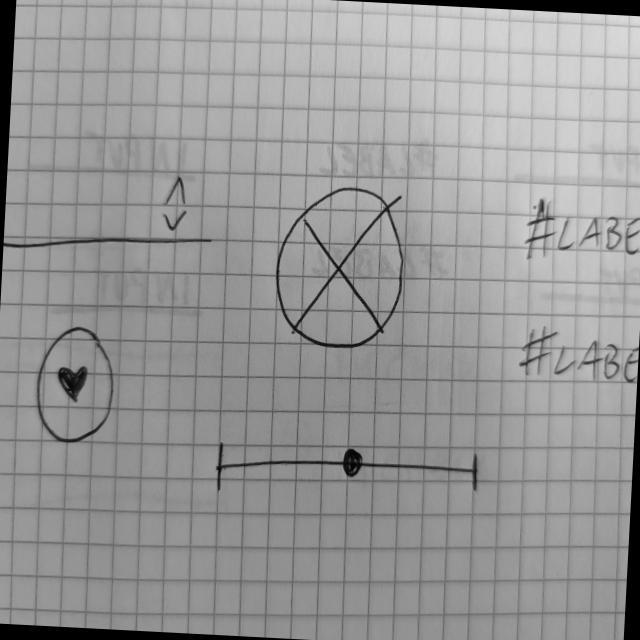 #LABE
#LABE